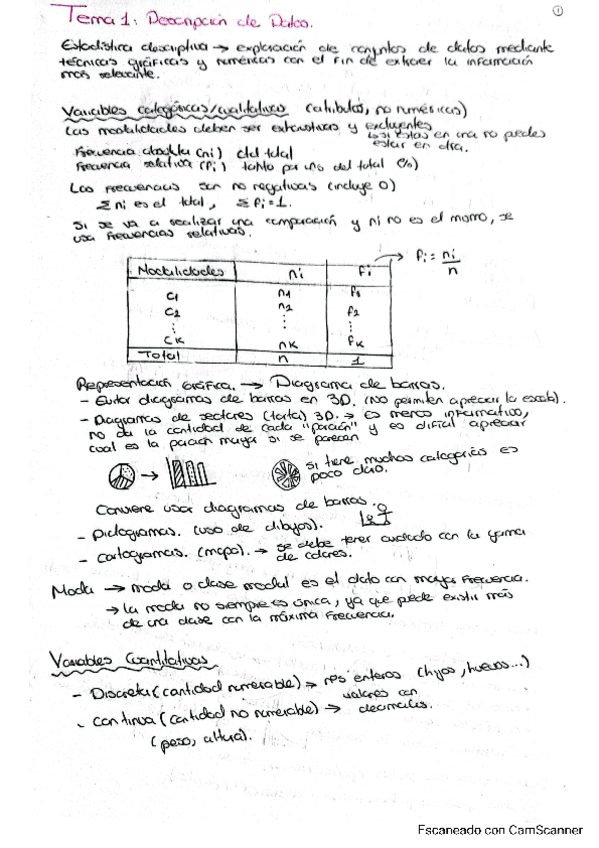 Tema 1: Descripción de Datos.
1
Estadística descriptiva → exploración de conjuntos de datos mediante
técnicas gráficas y numéricas con el fin de extraer la información
más relevante.
Variables categóricas/cualitativas (atributos, no numéricas)
Las modalidades deben ser exhaustivas y excluyentes
si estás en una no puedes
estar en otra.
Frecuencia absoluta (ni) del total
Frecuencia relativa (fi) tanto por uno del total (%)
Las frecuencias son no negativas (incluye 0)
Σ ni es el total, Σ fi = 1.
Si se va a realizar una comparación y ni no es el mismo, se
usa frecuencias relativas.
Modalidades ni fi → fi = ni/n
C1 n1 f1
C2 n2 f2
⋮ ⋮ ⋮
CK nK fK
Total n 1
Representación Gráfica. → Diagrama de barras.
- Evitar diagramas de barras en 3D. (No permiten apreciar la escala).
- Diagramas de sectores (tarta) 3D. → es menos informativo,
no da la cantidad de cada "porción" y es difícil apreciar
cual es la porción mayor si se parecen
si tiene muchas categorías es
poco claro.
Conviene usar diagramas de barras.
- Pictogramas. (uso de dibujos).
- Cartogramas. (mapa). → se debe tener cuidado con la gama
de colores.
Moda → moda o clase modal es el dato con mayor frecuencia.
→ la moda no siempre es única, ya que puede existir más
de una clase con la máxima frecuencia.
Variables Cuantitativas
- Discreta (cantidad numerable) → nºs enteros (hijos, huevos...)
- continua (cantidad no numerable) → valores con
decimales.
(peso, altura).
Escaneado con CamScanner